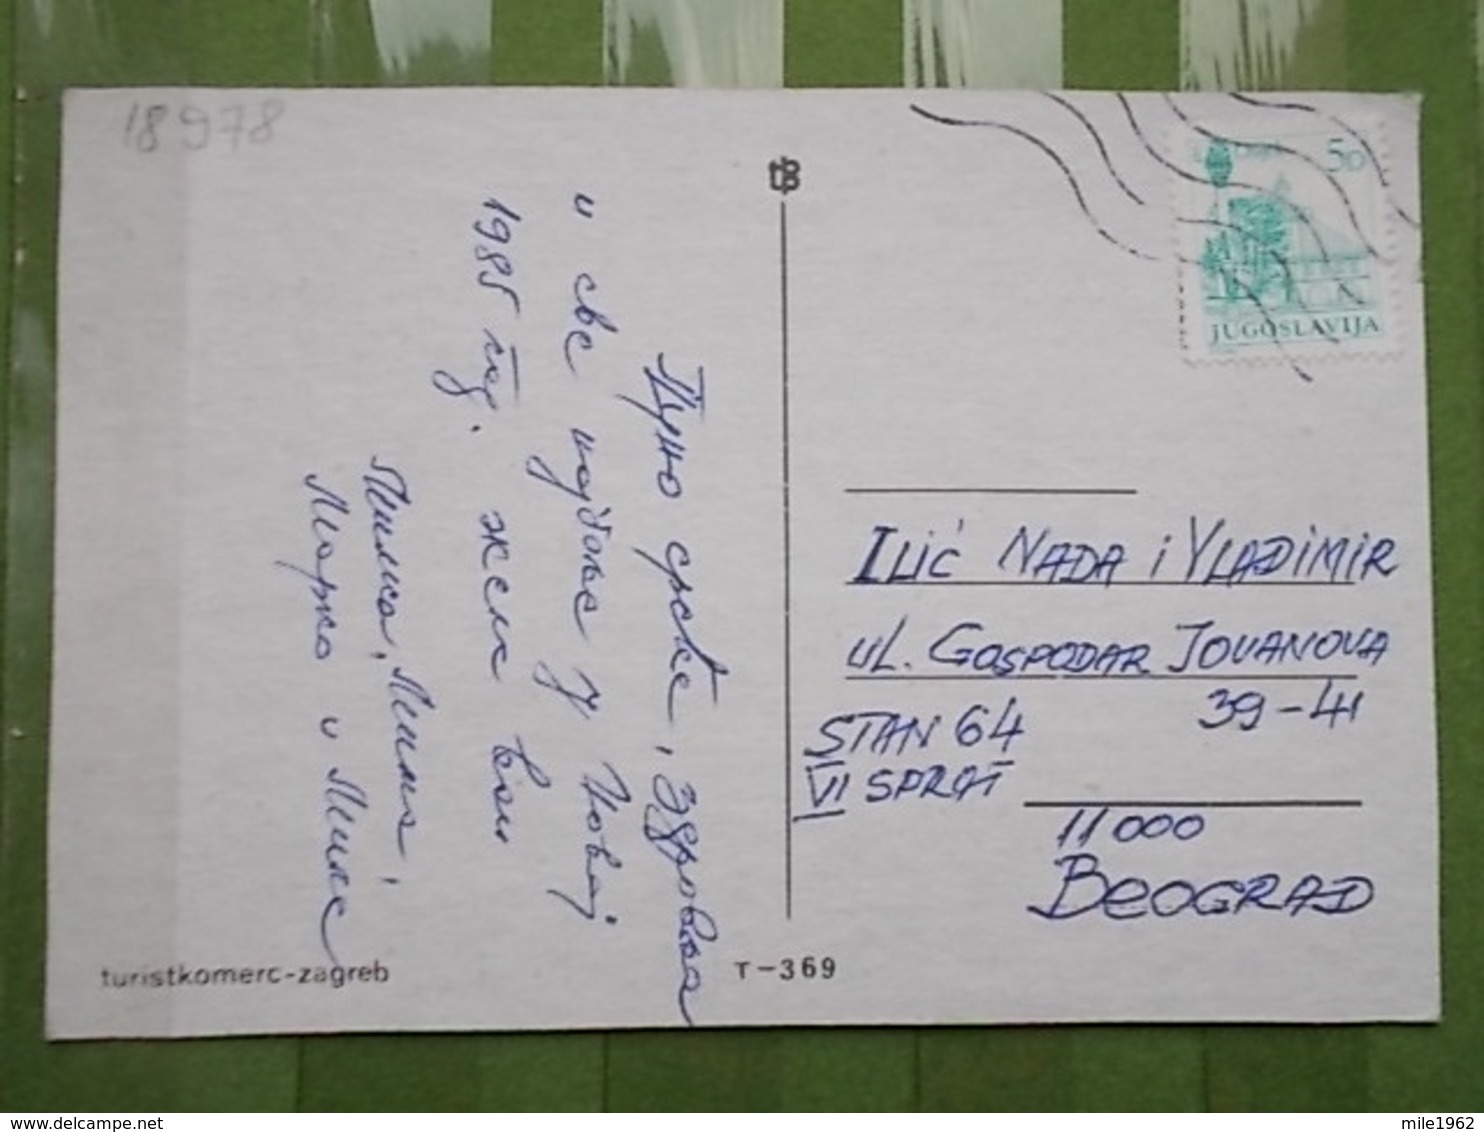 18978
Пуно среће, здравља
и све најбоље у Новој
1985 год. желе Вам
Милка, Мима,
Марко и Миле
50
JUGOSLAVIJA
ILIĆ NADA i VLADIMIR
UL. GOSPODAR JOVANOVA
39-41
STAN 64
VI SPRAT
11000
BEOGRAD
turistkomerc-zagreb
T-369
mile1962